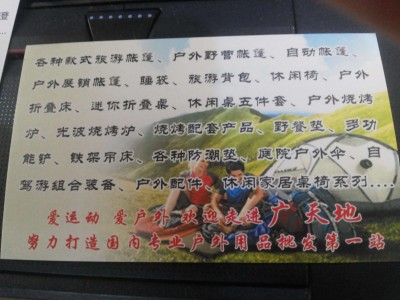 各种款式旅游帐篷、户外野营帐篷、自动帐篷、
户外展销帐篷、睡袋、旅游背包、休闲椅、户外
折叠床、迷你折叠桌、休闲桌五件套、户外烧烤
炉、光波烧烤炉、烧烤配套产品、野餐垫、多功
能铲、铁架吊床、各种防潮垫、庭院户外伞、自
驾游组合装备、户外配件、休闲家居桌椅系列....
爱运动 爱户外 欢迎走进广天地
努力打造国内专业户外用品批发第一站